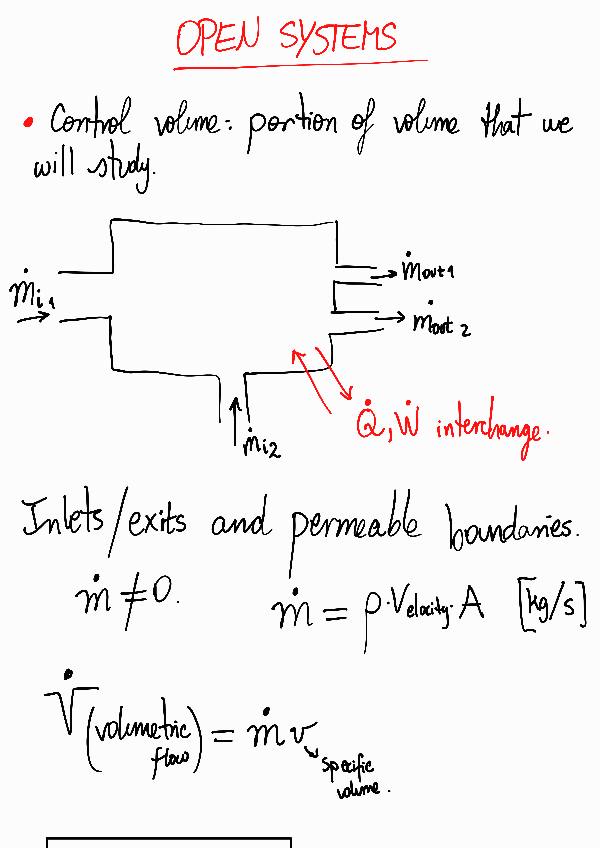 OPEN SYSTEMS
• Control volume: portion of volume that we
will study.
ṁi1
ṁout1
ṁout2
ṁi2
Q̇, Ẇ interchange.
Inlets/exits and permeable boundaries.
ṁ ≠ 0. ṁ = ρ·Velocity·A [kg/s]
V̇ (volumetric flow) = ṁ v
specific
volume.